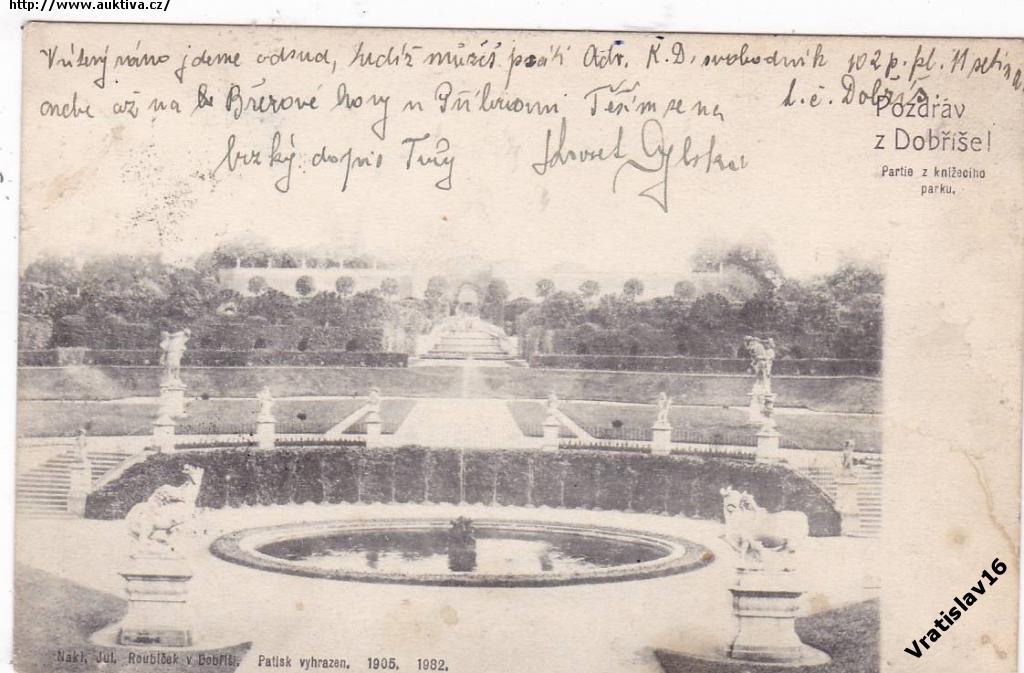 http://www.auktiva.cz/
ráno jdeme odsud, tudíž můžeš psáti Adr. K. D. svobodník 102 p. pl. 11 setina
anebo až na Březové hory u Příbrami Těším se na t. č. Dobříš.
brzký dopis Tvůj Karel
Pozdrav
z Dobříše!
Partie z knížecího
parku.
Nákl. Jul. Roubíček v Dobříši. Patisk vyhrazen. 1905. 1982.
Vratislav16